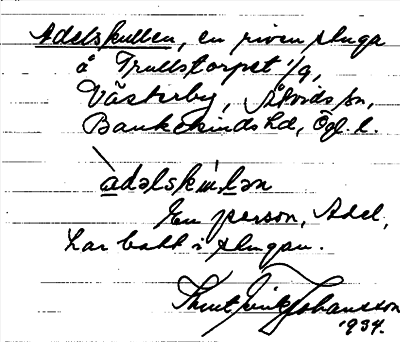 Adelskullen, en riven stuga
å Trullstorpet 1/9,
Västerby, Åtvids sn,
Bankekinds hd, Ögl. l.
En person, Adel,
har bott i stugan.
Knut Erik Johansson
1934.